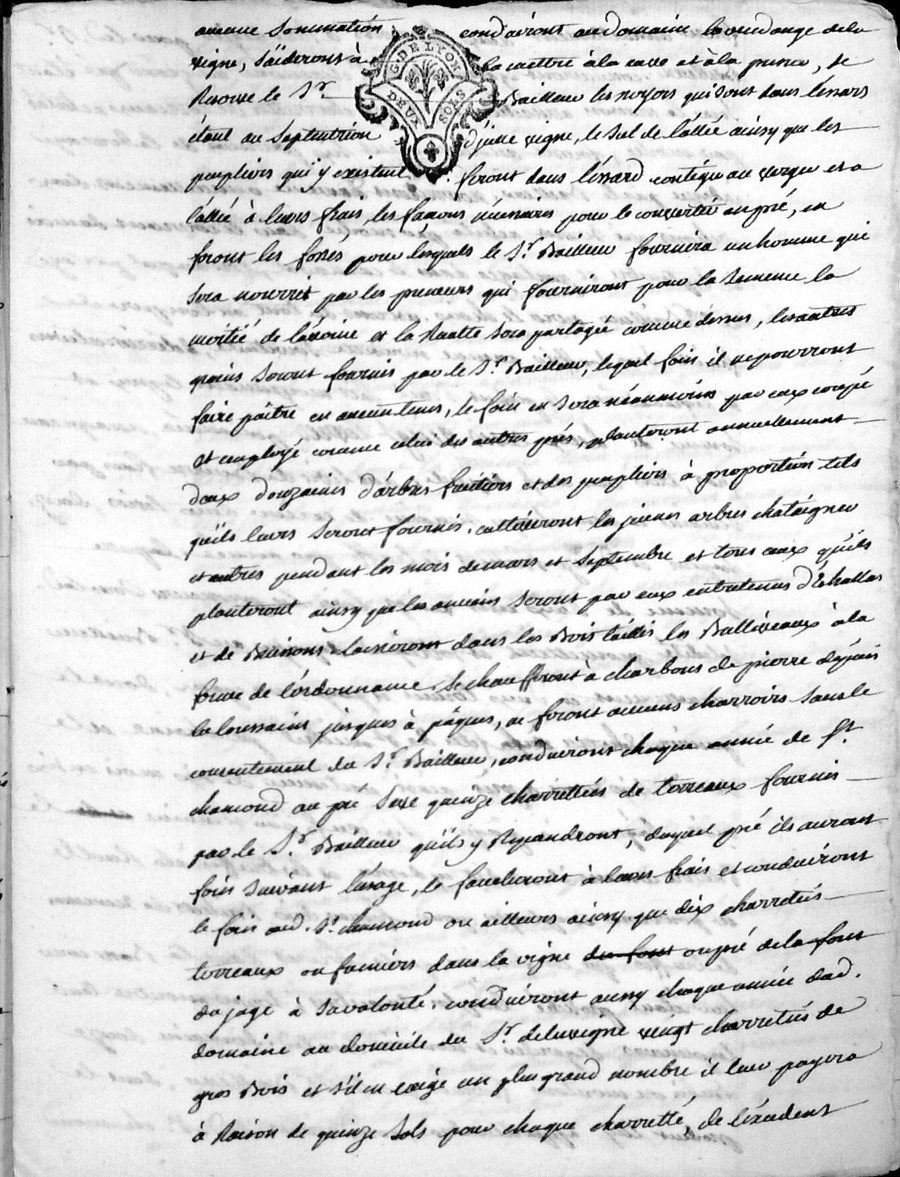 aucune sommation conduiront au domaine la vendange de la
vigne, s'aideront à la mettre à la cuve et à la presse, se
Reserve le Sr. Bailleur les noyers qui sont dans l'essars
étant au septentrion d'une vigne, le sol de l'allée ainsy que les
peupliers qui y existent. feront dans l'essard contigu au verger et a
l'allée à leurs frais les façons nécessaires pour le convertir en pré, en
feront les fossés pour lesquels le Sr. Bailleur fournira un homme qui
sera nourrit par les preneurs qui fourniront pour la semence la
moitié de l'avoine et la Recolte sera partagée comme dessus, les autres
grains seront fournis par le Sr. Bailleur, lequel foin il ne pourront
faire paître en aucun tems, le foin en sera néanmoins par eux coupé
et employé comme celui des autres prés, planteront annuellement
deux douzaines d'arbres fruitiers et des peupliers à proportion tels
qu'ils leurs seront fournis. cultiveront les jeunes arbres chataigners
et autres pendant les mois de mars et septembre et tous ceux qu'ils
planteront ainsy que les anciens seront par eux entretenus d'Echallas
et de Buissons. laisseront dans les Bois taillis les Balliveaux à la
forme de l'ordonnance. se chaufferont à charbons de pierre depuis
la toussaint jusques à pâques, ne feront aucuns charrois sans le
consentement du Sr. Bailleur, conduiront chaque année de St.
chamond au pré quinze charrettées de terreaux fournis
par le Sr. Bailleur qu'ils y Repandront, duquel pré ils auront
soin suivant l'usage, le faucheront à leurs frais et conduiront
le foin aud. St. chamond ou ailleurs ainsy que dix charretés
terreaux ou fumiers dans la vigne du font ou pré de la font
du jage à sa volonté. conduiront aussy chaque année dud.
domaine au domicile du Sr. delavigne vingt charretés de
gros Bois et s'il en exige un plus grand nombre il leur payera
à Raison de quinze sols pour chaque charretté, de l'exedent
G. DE LYON
DEUX SOLS